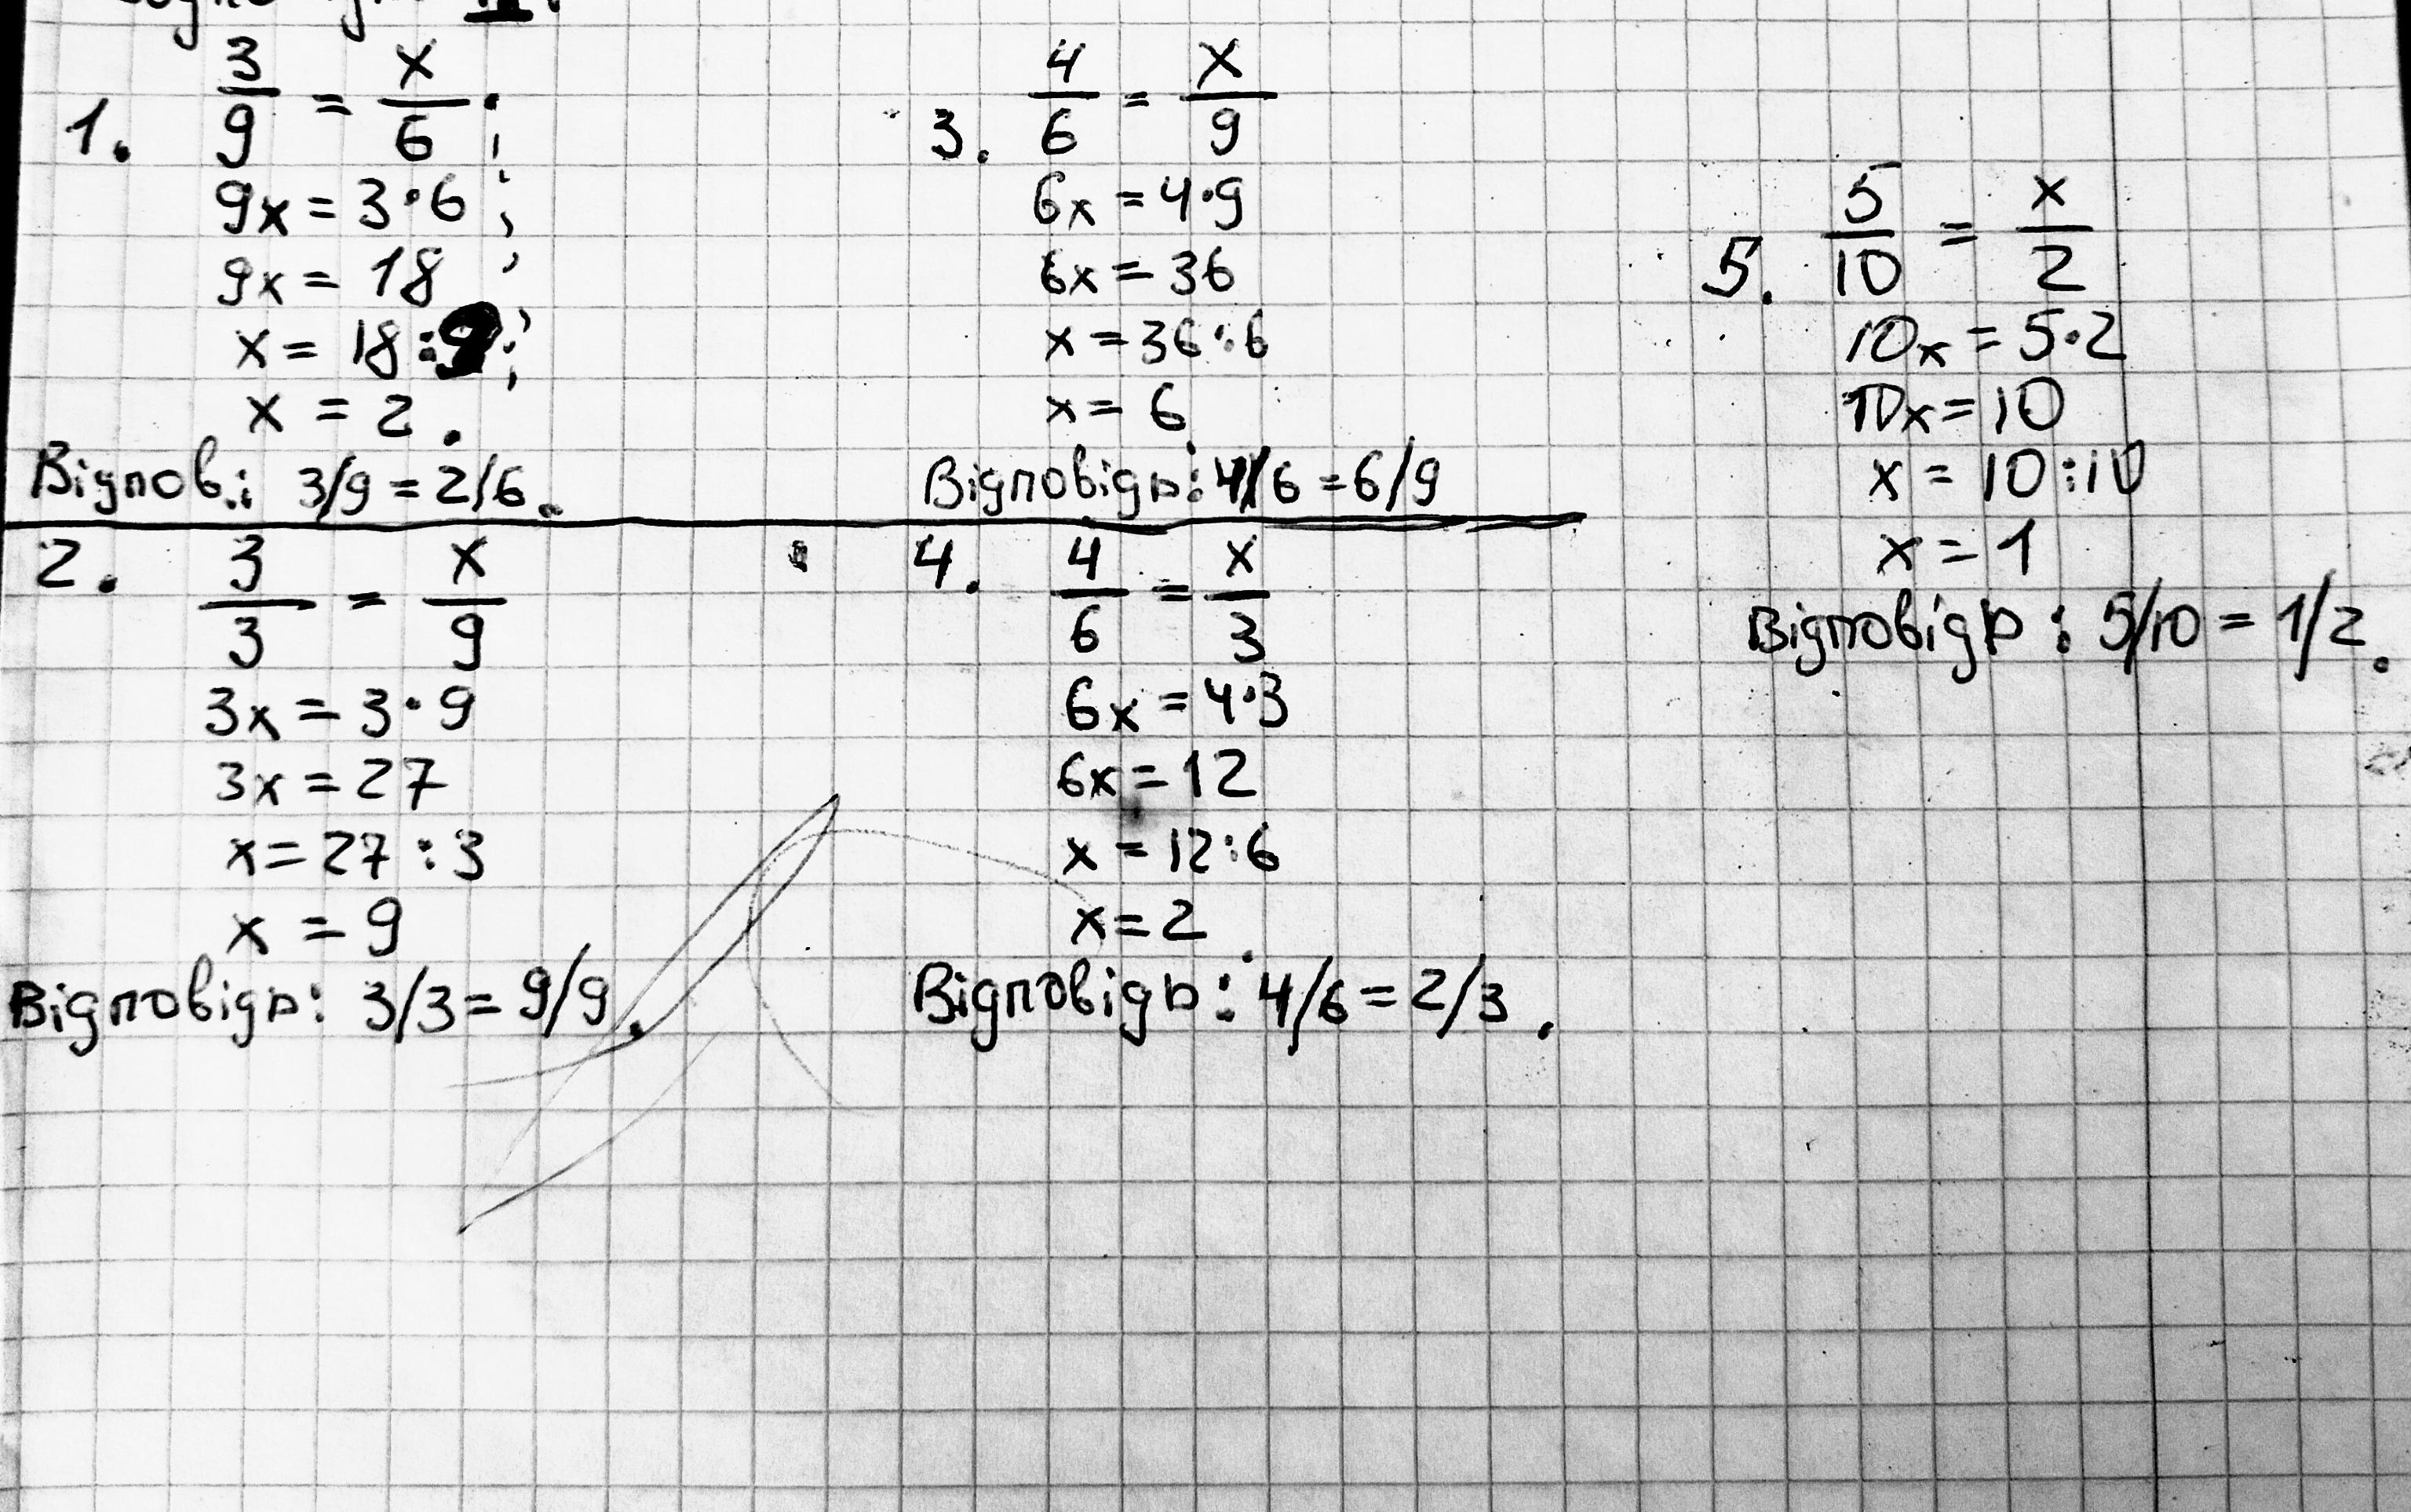 1. 3/9 = x/6 ;
9x = 3·6 ;
9x = 18 ;
x = 18:9 ;
x = 2 .
Віднов.: 3/9 = 2/6 .
2. 3/3 = x/9
3x = 3·9
3x = 27
x = 27 : 3
x = 9
Відповідь: 3/3 = 9/9 .
3. 4/6 = x/9
6x = 4·9
6x = 36
x = 36:6
x = 6
Відповідь: 4/6 = 6/9
4. 4/6 = x/3
6x = 4·3
6x = 12
x = 12:6
x = 2
Відповідь: 4/6 = 2/3 .
5. 5/10 = x/2
10x = 5·2
10x = 10
x = 10:10
x = 1
Відповідь : 5/10 = 1/2 .